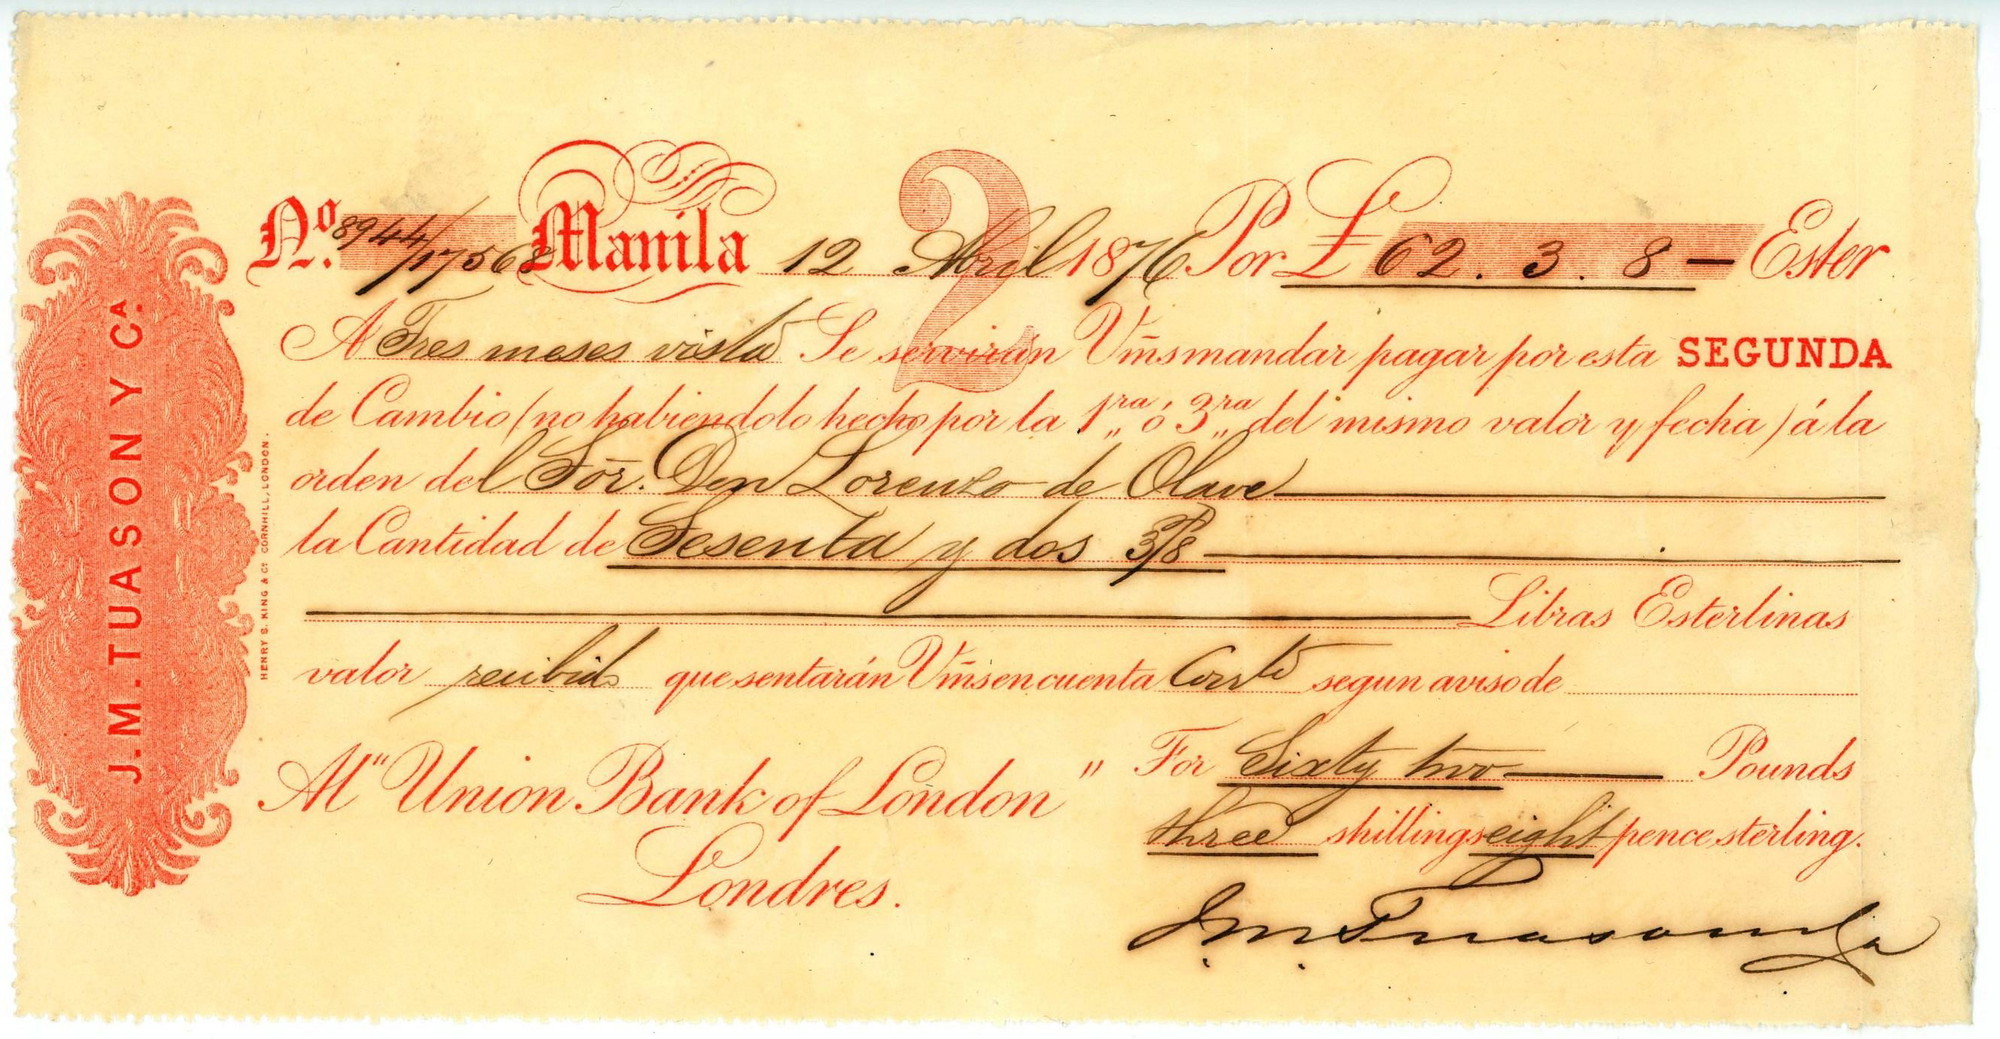 J. M. TUASON Y Cª.
HENRY S. KING & Cº CORNHILL, LONDON.
2
Nº. 8944/17568 Manila 12 Abril 1876 Por £ 62. 3. 8 — Ester.
A Tres meses vista Se serviran Vms mandar pagar por esta SEGUNDA
de Cambio (no habiendolo hecho por la 1ra ó 3ra del mismo valor y fecha) á la
orden del Sor. Don Lorenzo de Olave
la Cantidad de Sesenta y dos 3/8
Libras Esterlinas
valor recibido que sentarán Vms en cuenta Corrte segun aviso de
Al "Union Bank of London"
Londres.
For Sixty two Pounds
three shillings eight pence sterling.
J. M. Tuason y Ca